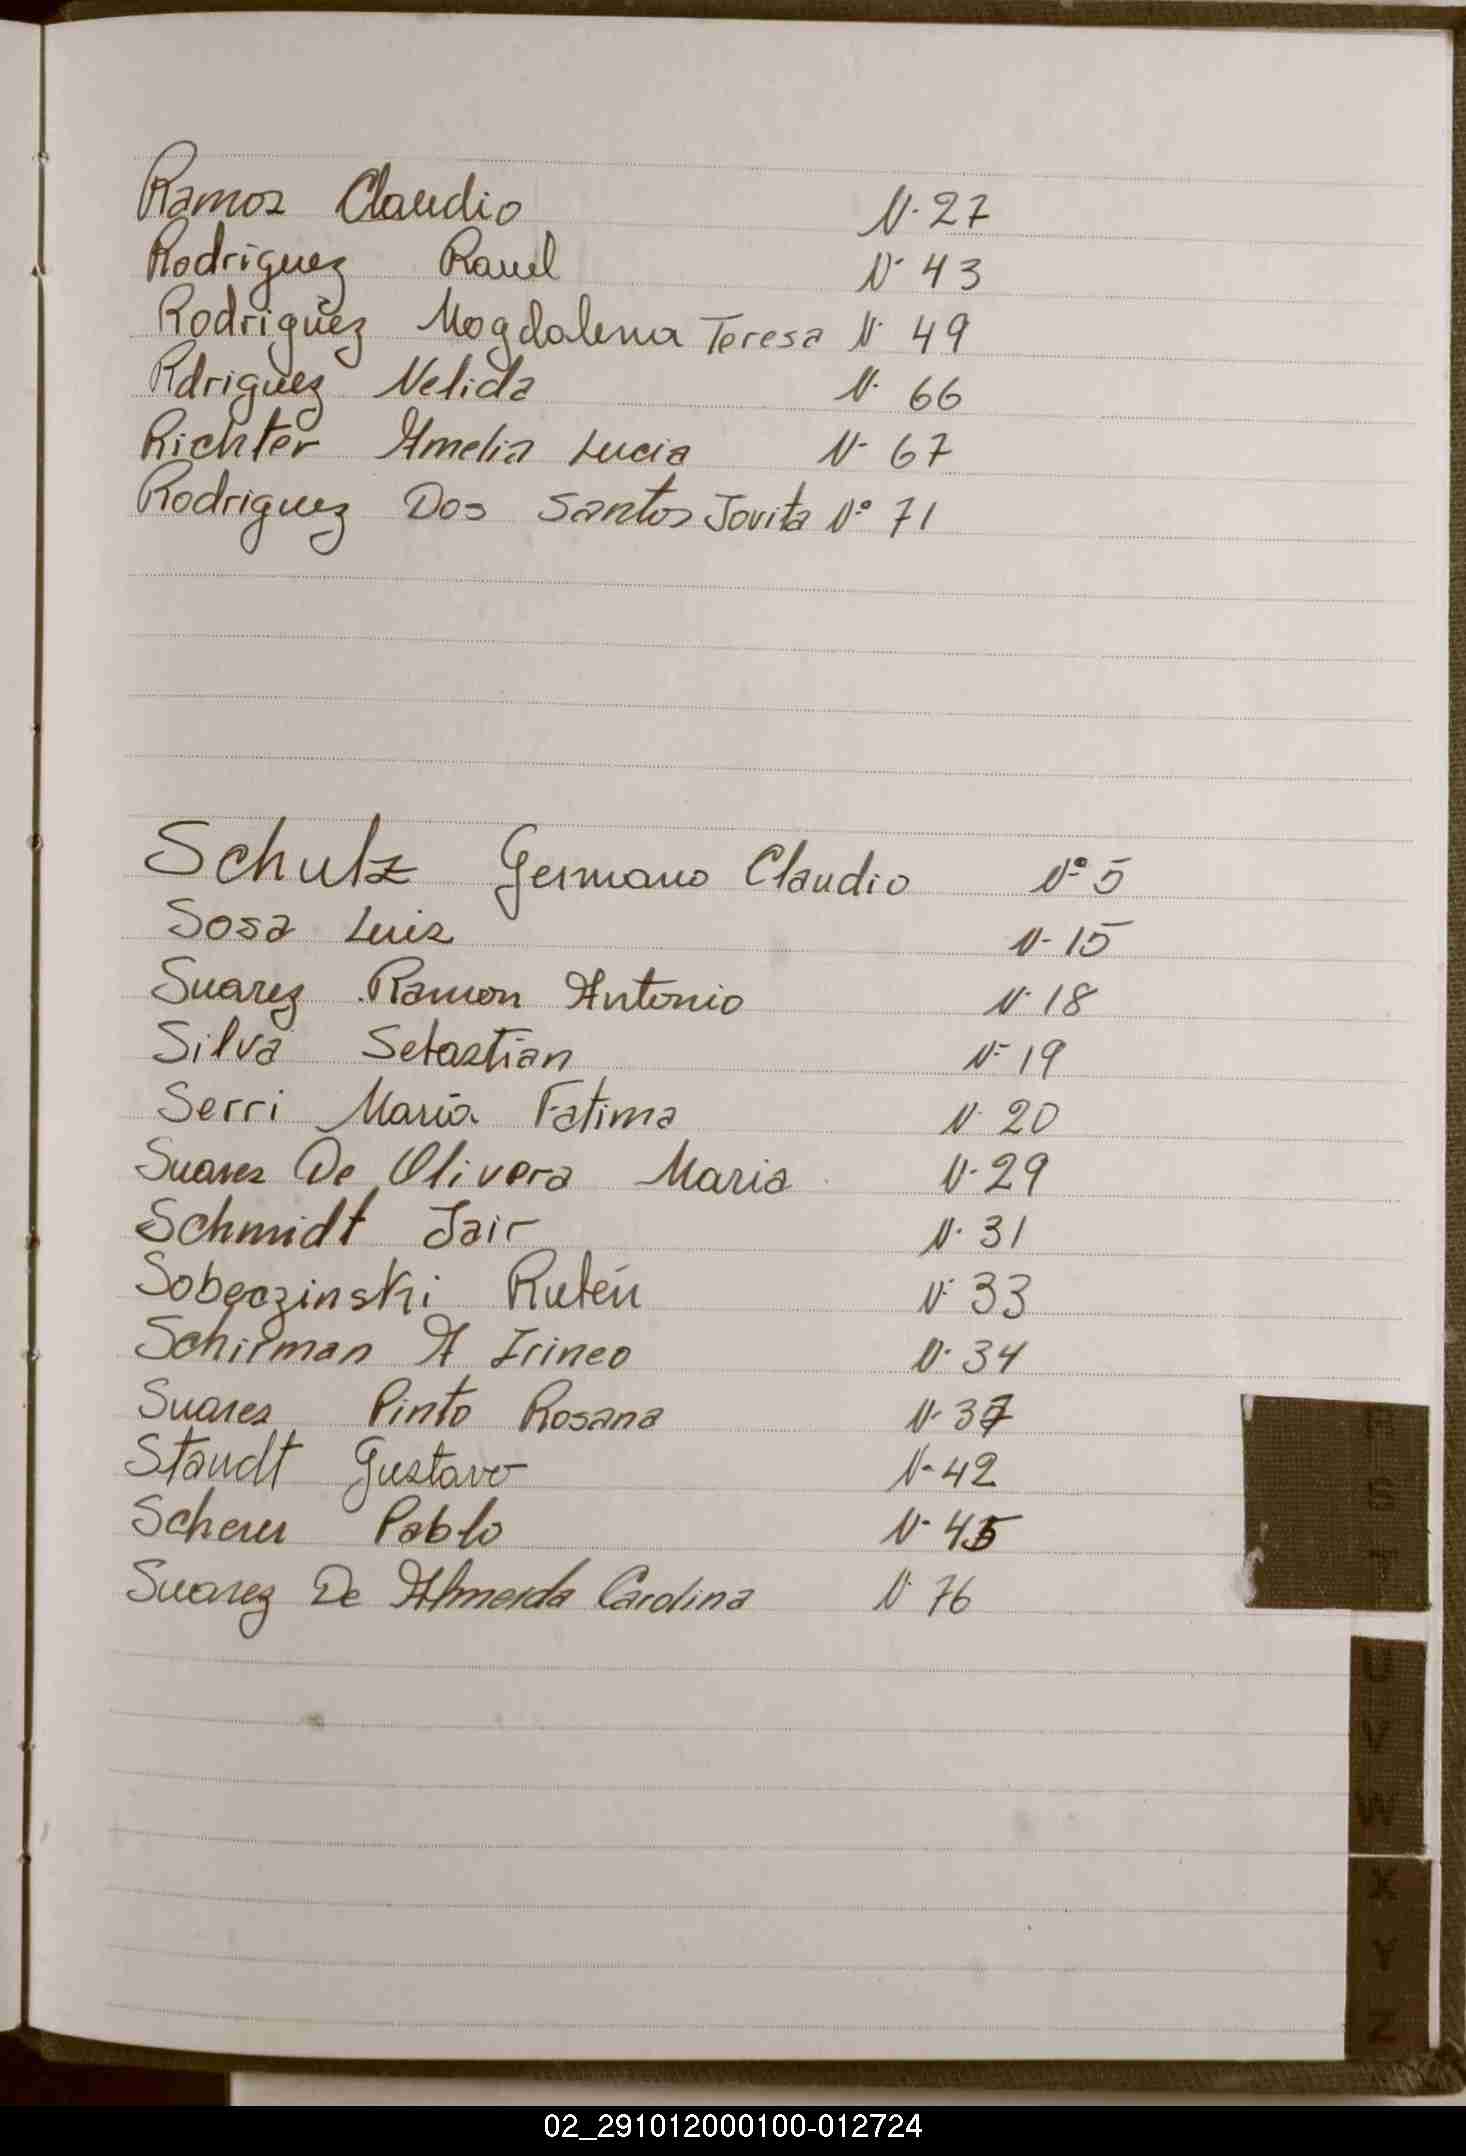 Ramos Claudio N. 27
Rodriguez Raul N. 43
Rodriguez Magdalena Teresa N. 49
Rdriguez Nelida N. 66
Richter Amelia Lucia N. 67
Rodriguez Dos Santos Jovita Nº 71
Schulz Germano Claudio Nº 5
Sosa Luis N. 15
Suarez Ramon Antonio N. 18
Silva Sebastian N. 19
Serri María Fatima N. 20
Suares De Olivera Maria N. 29
Schmidt Jair N. 31
Sobeczinski Rubén N. 33
Schirman A Irineo N. 34
Suares Pinto Rosana N. 37
Staudt Gustavo N. 42
Scherer Pablo N. 45
Suarez De Almeida Carolina N. 76
R
S
T
U
V
W
X
Y
Z
02_291012000100-012724